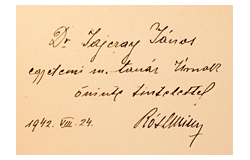 Dr. Tajcray János
egyetemi m. tanár Úrnak
őszinte tisztelettel
1942. VIII. 24.